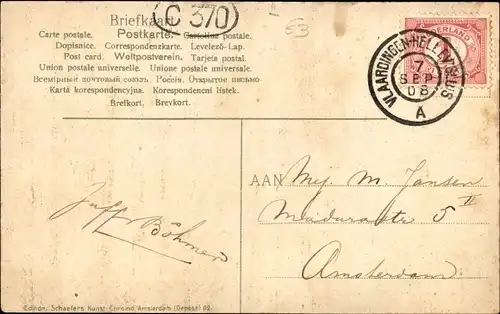 Briefkaart
C 370
53
Postkarte. Cartolina postale.
Carte postale.
Dopisnice. Correspondenzkarte. Levelező-Lap.
Post card. Weltpostverein. Tarjeta postal.
Union postale universelle. Unione postale universale.
Всемірный почтовый союзъ. Россія. Открытое письмо
Karta korespondencyjna. Korespondenční lístek.
Brefkort. Brevkort.
NEDERLAND
VLAARDINGEN-HELLEVOETSLUIS
7
SEP
08
A
AAN Mej. M. Jansen
Madurastr 5 II
Amsterdam.
Juffr Böhmer
Edition: Schaefers Kunst-Chromo, Amsterdam (Deposé) 62